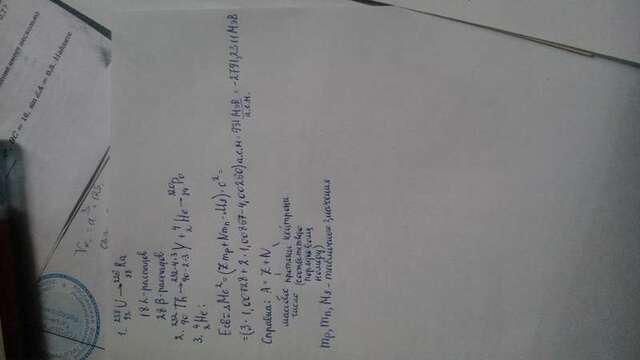 ВС = 16, sin ∠A = 0,8. Найдите
1. ²³⁸₉₂U → ²²⁶₈₈Ra
18 α-распадов
28 β-распадов
2. ²³²₉₀Th → ²³²⁻⁴·³₉₀₋₂·₃Y + ⁴₂He →
3. ⁴₂He:
Eсв = ΔMc² = (Zmp + Nmn - Mя)·c² =
= (3 · 1,00728 + 2 · 1,00867 - 4,00260) а.е.м. · 931 МэВ/а.е.м. = -2791,2311 МэВ
Справка: A = Z + N
массовое число
протоны (соответствию порядковому номеру)
нейтроны
mp, mn, Mя - табличные значения